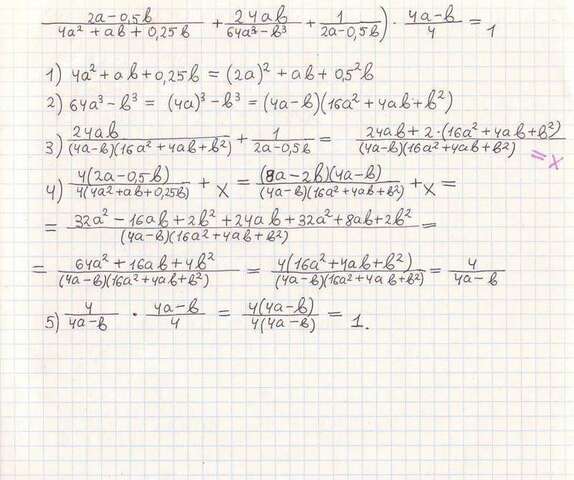 (2a-0,5b)/(4a²+ab+0,25b) + 24ab/(64a³-b³) + 1/(2a-0,5b)) · (4a-b)/4 = 1
1) 4a²+ab+0,25b = (2a)²+ab+0,5²b
2) 64a³-b³ = (4a)³-b³ = (4a-b)(16a²+4ab+b²)
3) 24ab/((4a-b)(16a²+4ab+b²)) + 1/(2a-0,5b) = (24ab+2·(16a²+4ab+b²))/((4a-b)(16a²+4ab+b²)) = x
4) 4(2a-0,5b)/(4(4a²+ab+0,25b)) + x = (8a-2b)(4a-b)/((4a-b)(16a²+4ab+b²)) + x =
= (32a²-16ab+2b²+24ab+32a²+8ab+2b²)/((4a-b)(16a²+4ab+b²)) =
= (64a²+16ab+4b²)/((4a-b)(16a²+4ab+b²)) = 4(16a²+4ab+b²)/((4a-b)(16a²+4ab+b²)) = 4/(4a-b)
5) 4/(4a-b) · (4a-b)/4 = 4(4a-b)/(4(4a-b)) = 1.